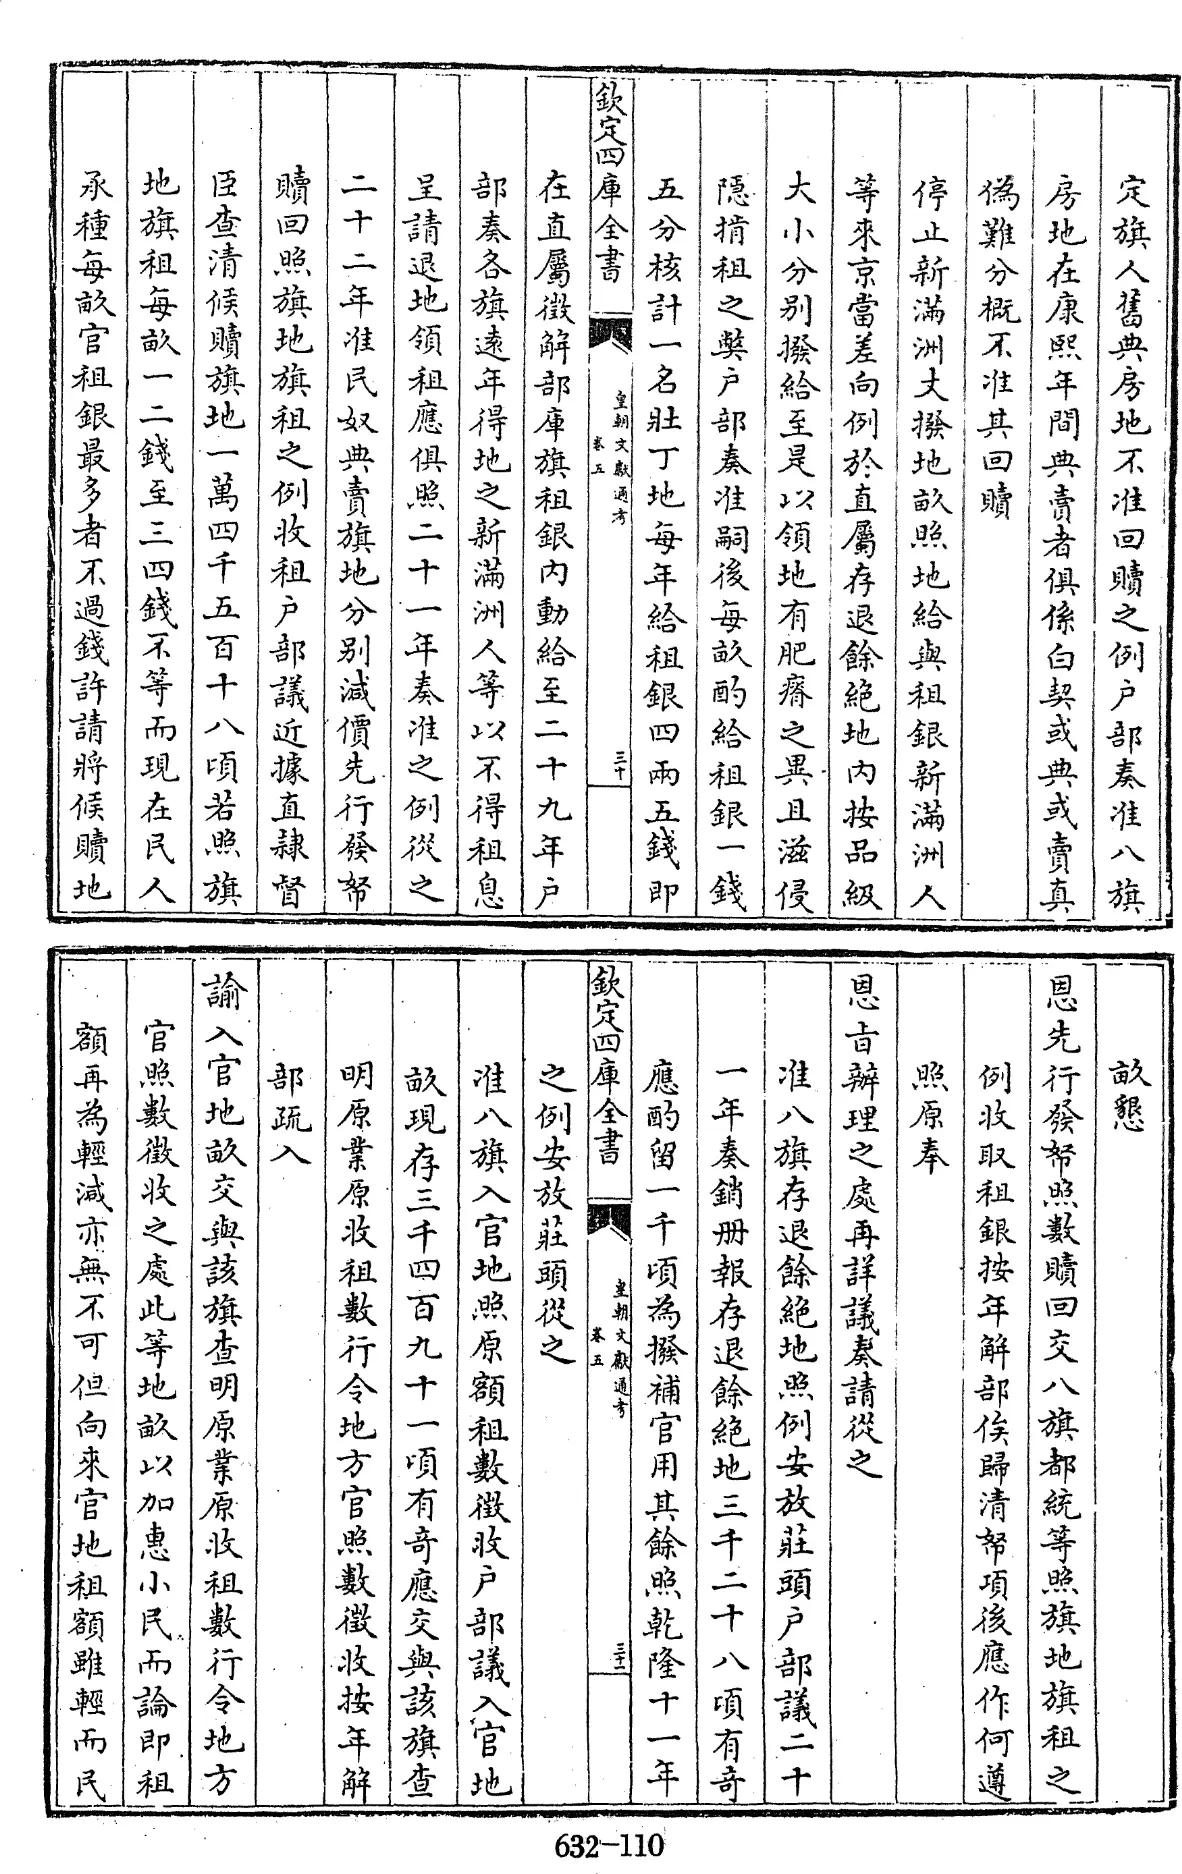 定旗人舊典房地不准回贖之例户部奏准八旗
房地在康熙年間典賣者俱係白契或典或賣真
僞難分概不准其回贖
停止新滿洲丈撥地畝照地給與租銀新滿洲人
等來京當差向例於直屬存退餘絶地内按品級
大小分别撥給至是以領地有肥瘠之異且滋侵
隱掯租之獘户部奏准嗣後每畝酌給租銀一錢
五分核計一名壯丁地每年給租銀四兩五錢即
欽定四庫全書
皇朝文獻通考
卷五
三十
在直屬徵解部庫旗租銀内動給至二十九年户
部奏各旗遠年得地之新滿洲人等以不得租息
呈請退地領租應俱照二十一年奏准之例從之
二十二年准民奴典賣旗地分别減價先行發帑
贖回照旗地旗租之例收租户部議近據直隸督
臣查清候贖旗地一萬四千五百十八頃若照旗
地旗租每畝一二錢至三四錢不等而現在民人
承種每畝官租銀最多者不過錢許請將候贖地
畝懇
恩先行發帑照數贖回交八旗都統等照旗地旗租之
例收取租銀按年解部俟歸清帑項後應作何遵
照原奉
恩旨辦理之處再詳議奏請從之
准八旗存退餘絶地照例安放莊頭户部議二十
一年奏銷册報存退餘絶地三千二十八頃有奇
應酌留一千頃為撥補官用其餘照乾隆十一年
欽定四庫全書
皇朝文獻通考
卷五
三十一
之例安放莊頭從之
准八旗入官地照原額租數徵收户部議入官地
畝現存三千四百九十一頃有奇應交與該旗查
明原業原收租數行令地方官照數徵收按年解
部疏入
諭入官地畝交與該旗查明原業原收租數行令地方
官照數徵收之處此等地畝以加惠小民而論即租
額再為輕減亦無不可但向來官地租額雖輕而民
632-110